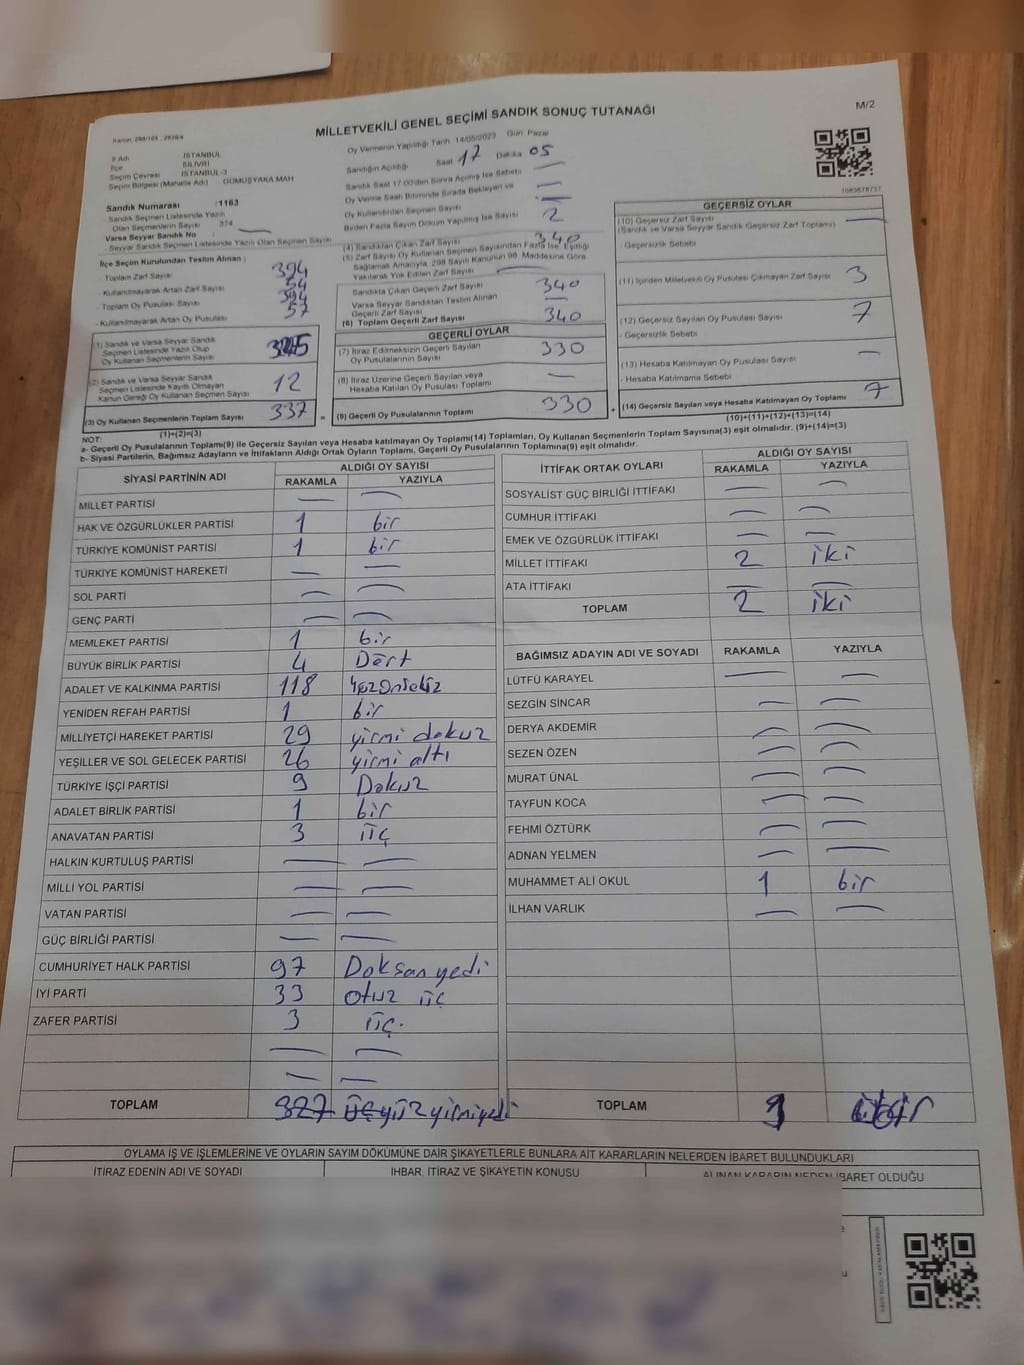 M/2
Kanun: 298/105 , 2839/4
MİLLETVEKİLİ GENEL SEÇİMİ SANDIK SONUÇ TUTANAĞI
İl Adı : İSTANBUL
İlçe : SİLİVRİ
Seçim Çevresi : İSTANBUL-3
Seçim Bölgesi (Mahalle Adı) : GÜMÜŞYAKA MAH
Sandık Numarası : 1163
- Sandık Seçmen Listesinde Yazılı
Olan Seçmenlerin Sayısı : 374
Varsa Seyyar Sandık No : —
- Seyyar Sandık Seçmen Listesinde Yazılı Olan Seçmen Sayısı
İlçe Seçim Kurulundan Teslim Alınan ;
- Toplam Zarf Sayısı 394
- Kullanılmayarak Artan Zarf Sayısı 54
- Toplam Oy Pusulası Sayısı 394
- Kullanılmayarak Artan Oy Pusulası 57
(1) Sandık ve Varsa Seyyar Sandık
Seçmen Listesinde Yazılı Olup
Oy Kullanan Seçmenlerin Sayısı
(2) Sandık ve Varsa Seyyar Sandık
Seçmen Listesinde Kayıtlı Olmayan
Kanun Gereği Oy Kullanan Seçmen Sayısı 12
(3) Oy Kullanan Seçmenlerin Toplam Sayısı 337
(1)+(2)=(3)
Oy Vermenin Yapıldığı Tarih 14/05/2023 Gün Pazar
Sandığın Açıldığı Saat 17 Dakika 05
Sandık Saat 17:00'den Sonra Açılmış İse Sebebi —
Oy Verme Saati Bitiminde Sırada Bekleyen ve
Oy Kullandırılan Seçmen Sayısı —
Birden Fazla Sayım Döküm Yapılmış İse Sayısı 2
(4) Sandıktan Çıkan Zarf Sayısı 340
(5) Zarf Sayısı Oy Kullanan Seçmen Sayısından Fazla İse, Eşitliği
Sağlamak Amacıyla, 298 Sayılı Kanunun 98. Maddesine Göre
Yakılarak Yok Edilen Zarf Sayısı —
Sandıkta Çıkan Geçerli Zarf Sayısı 340
Varsa Seyyar Sandıktan Teslim Alınan
Geçerli Zarf Sayısı —
(6) Toplam Geçerli Zarf Sayısı 340
GEÇERLİ OYLAR
(7) İtiraz Edilmeksizin Geçerli Sayılan
Oy Pusulalarının Sayısı 330
(8) İtiraz Üzerine Geçerli Sayılan veya
Hesaba Katılan Oy Pusulası Toplamı —
= (9) Geçerli Oy Pusulalarının Toplamı 330
GEÇERSİZ OYLAR
(10) Geçersiz Zarf Sayısı —
(Sandık ve Varsa Seyyar Sandık Geçersiz Zarf Toplamı)
- Geçersizlik Sebebi
(11) İçinden Milletvekili Oy Pusulası Çıkmayan Zarf Sayısı 3
(12) Geçersiz Sayılan Oy Pusulası Sayısı 7
- Geçersizlik Sebebi
(13) Hesaba Katılmayan Oy Pusulası Sayısı —
- Hesaba Katılmama Sebebi
+ (14) Geçersiz Sayılan veya Hesaba Katılmayan Oy Toplamı 7
(10)+(11)+(12)+(13)=(14)
NOT:
a- Geçerli Oy Pusulalarının Toplamı(9) ile Geçersiz Sayılan veya Hesaba katılmayan Oy Toplamı(14) Toplamları, Oy Kullanan Seçmenlerin Toplam Sayısına(3) eşit olmalıdır. (9)+(14)=(3)
b- Siyasi Partilerin, Bağımsız Adayların ve İttifakların Aldığı Ortak Oyların Toplamı, Geçerli Oy Pusulalarının Toplamına(9) eşit olmalıdır.
SİYASİ PARTİNİN ADI ALDIĞI OY SAYISI
RAKAMLA YAZIYLA
MİLLET PARTİSİ — —
HAK VE ÖZGÜRLÜKLER PARTİSİ 1 bir
TÜRKİYE KOMÜNİST PARTİSİ 1 bir
TÜRKİYE KOMÜNİST HAREKETİ — —
SOL PARTİ — —
GENÇ PARTİ — —
MEMLEKET PARTİSİ 1 bir
BÜYÜK BİRLİK PARTİSİ 4 Dört
ADALET VE KALKINMA PARTİSİ 118 Yüzonsekiz
YENİDEN REFAH PARTİSİ 1 bir
MİLLİYETÇİ HAREKET PARTİSİ 29 yirmi dokuz
YEŞİLLER VE SOL GELECEK PARTİSİ 26 yirmi altı
TÜRKİYE İŞÇİ PARTİSİ 9 Dokuz
ADALET BİRLİK PARTİSİ 1 bir
ANAVATAN PARTİSİ 3 üç
HALKIN KURTULUŞ PARTİSİ — —
MİLLİ YOL PARTİSİ — —
VATAN PARTİSİ — —
GÜÇ BİRLİĞİ PARTİSİ — —
CUMHURİYET HALK PARTİSİ 97 Doksan yedi
İYİ PARTİ 33 otuz üç
ZAFER PARTİSİ 3 üç.
— —
— —
TOPLAM 327 üçyüz yirmiyedi
İTTİFAK ORTAK OYLARI ALDIĞI OY SAYISI
RAKAMLA YAZIYLA
SOSYALİST GÜÇ BİRLİĞİ İTTİFAKI — —
CUMHUR İTTİFAKI — —
EMEK VE ÖZGÜRLÜK İTTİFAKI — —
MİLLET İTTİFAKI 2 iki
ATA İTTİFAKI — —
TOPLAM 2 iki
BAĞIMSIZ ADAYIN ADI VE SOYADI RAKAMLA YAZIYLA
LÜTFÜ KARAYEL — —
SEZGİN SİNCAR — —
DERYA AKDEMİR — —
SEZEN ÖZEN — —
MURAT ÜNAL — —
TAYFUN KOCA — —
FEHMİ ÖZTÜRK — —
ADNAN YELMEN — —
MUHAMMET ALİ OKUL 1 bir
İLHAN VARLIK — —
TOPLAM 1 bir
OYLAMA İŞ VE İŞLEMLERİNE VE OYLARIN SAYIM DÖKÜMÜNE DAİR ŞİKAYETLERLE BUNLARA AİT KARARLARIN NELERDEN İBARET BULUNDUKLARI
İTİRAZ EDENİN ADI VE SOYADI İHBAR, İTİRAZ VE ŞİKAYETİN KONUSU ALINAN KARARIN NEDEN İBARET OLDUĞU